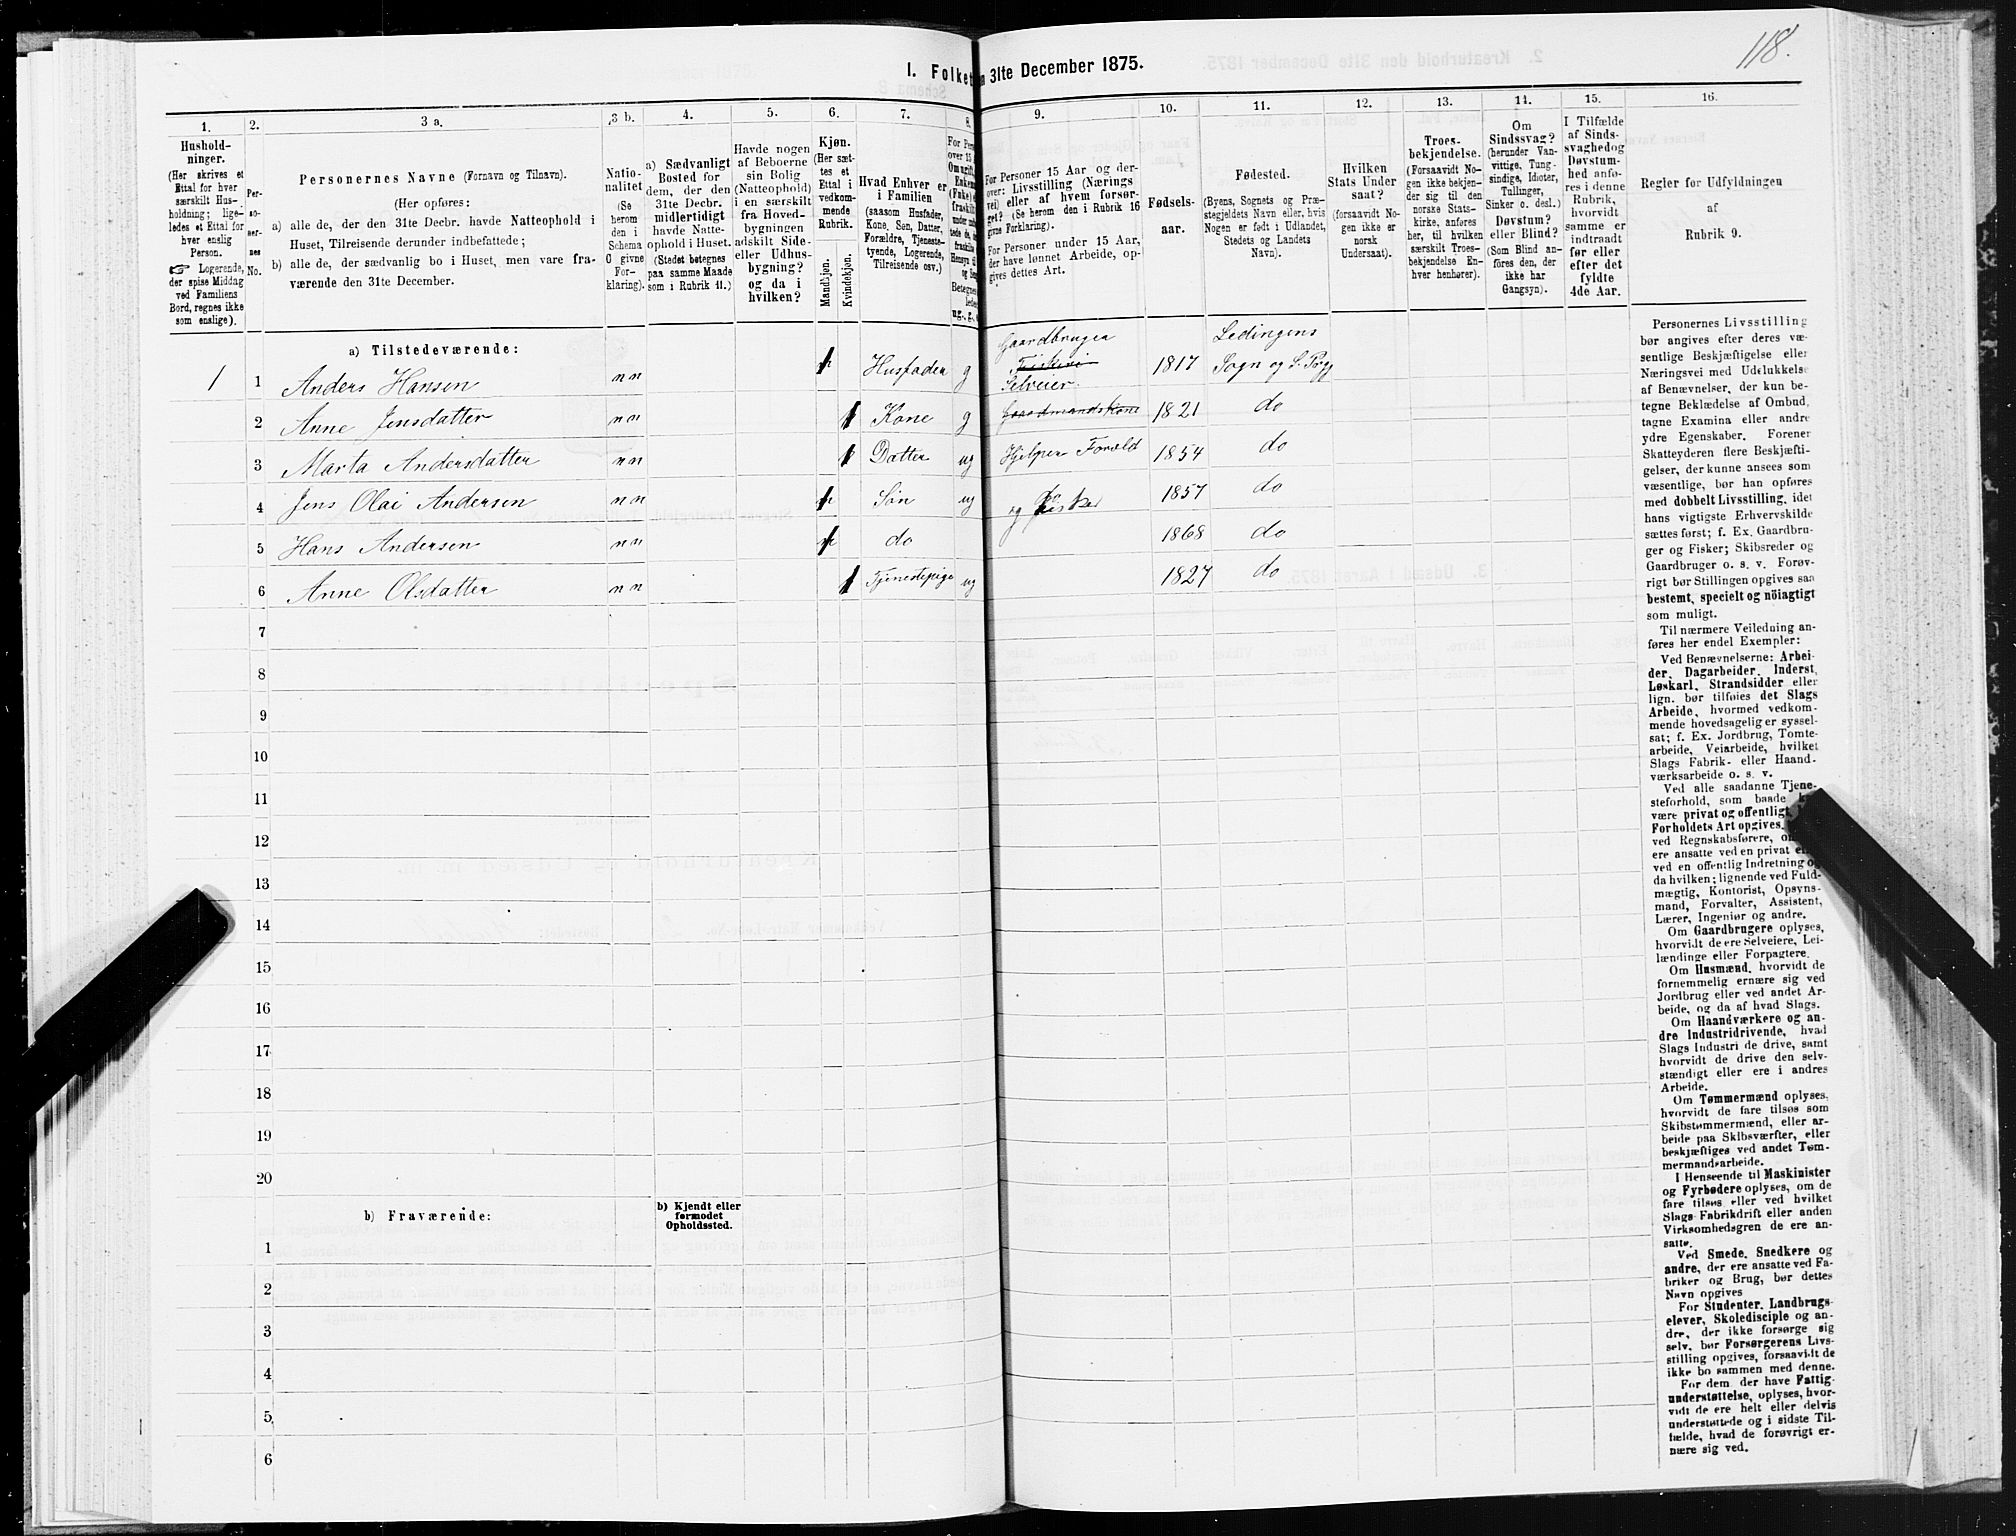 118.
I. Folket
a 31te December 1875.
1. 2. 3 a. 3 b. 4. 5. 6. 7. 8. 9. 10. 11. 12. 13. 14. 15. 16.
Hushold-
ninger.
(Her skrives et
Ettal for hver
særskilt Hus-
holdning; lige-
ledes et Ettal for
hver enslig
Person.
☞ Logerende,
der spise Middag
ved Familiens
Bord, regnes ikke
som enslige).
Per-
so-
ner-
nes
No.
Personernes Navne (Fornavn og Tilnavn).
(Her opføres:
a) alle de, der den 31te Decbr. havde Natteophold i
Huset, Tilreisende derunder indbefattede;
b) alle de, der sædvanlig bo i Huset, men vare fra-
værende den 31te December.
Natio-
nalitet
(Se
herom
den i
Schema
O givne
For-
klaring).
a) Sædvanligt
Bosted for
dem, der den
31te Decbr.
midlertidigt
havde Natte-
ophold i Huset.
(Stedet betegnes
paa samme Maade
som i Rubrik 11.)
Havde nogen
af Beboerne
sin Bolig
(Natteophold)
i en særskilt
fra Hoved-
bygningen
adskilt Side-
eller Udhus-
bygning?
og da i
hvilken?
Kjøn.
(Her sæt-
tes et
Ettal i
vedkom-
mende
Rubrik.
Mandkjøn.
Kvindekjøn.
Hvad Enhver er
i Familien
(saasom Husfader,
Kone, Søn, Datter,
Forældre, Tjeneste-
tyende, Logerende,
Tilreisende osv.)
For Personer 15 Aar og der-
over: Livsstilling (Nærings
vei) eller af hvem forsør-
get? (Se herom den i Rubrik 16
givne Forklaring).
For Personer under 15 Aar,
der have lønnet Arbeide, op-
gives dettes Art.
Fødsels-
aar.
Fødested.
(Byens, Sognets og Præ-
stegjeldets Navn eller, hvis
Nogen er født i Udlandet,
Stedets og Landets
Navn).
Hvilken
Stats Under
saat?
(forsaavidt No-
gen ikke er
norsk
Undersaat).
Troes-
bekjendelse.
(Forsaavidt No-
gen ikke bekjen-
der sig til den
norske Stats-
kirke, anføres
her, til hvilken
særskilt Troes-
bekjendelse En-
hver henhører).
Om
Sindssvag?
(herunder Van-
vittige, Tung-
sindige, Idioter,
Tullinger,
Sinker o. desl.)
Døvstum?
eller Blind?
(Som Blind an-
føres den, der
ikke har
Gangsyn).
I Tilfælde
af Sinds-
svaghedog
Døvstum-
hed anfø-
res i denne
Rubrik,
hvorvidt
samme er
indtraadt
før eller
efter det
fyldte
4de Aar.
Regler før Udfyldningen
af
Rubrik 9.
a) Tilstedeværende:
1 1 Anders Hansen n n Husfader g Gaardbruger Fiskeri Selveier. 1817 Lødingens Sogn og
2 Anne Jensdatter n n 1 Kone g Gaardmandskone 1821 do
3 Marta Andersdatter n n 1 Datter ug Hjelper Foræld 1854 do
4 Jens Olai Andersen n n Søn ug og fisker 1857 do
5 Hans Andersen n n do 1868 do
6 Anne Olsdatter n n 1 Tjenestepige ug 1827 do
7
8
9
10
11
12
13
14
15
16
17
18
19
20
b) Fraværende:
b) Kjendt eller
formodet
Opholdssted.
1
2
3
4
5
6
Personernes Livsstilling
bør angives efter deres væ-
sentlige Beskjæftigelse eller
Næringsvei med Udelukkelse
af Benævnelser, der kun be-
tegne Beklædelse af Ombud,
tagne Examina eller andre
ydre Egenskaber. Forener
Skatteyderen flere Beskjæfti-
gelser, der kunne ansees som
væsentlige, bør han opføres
med dobbelt Livsstilling, idet
hans vigtigste Erhvervskilde
sættes først; f. Ex. Gaardbru-
ger og Fisker; Skibsreder og
Gaardbruger o. s. v. Forøv-
rigt bør Stillingen opgives saa
bestemt, specielt og nöiagtigt
som muligt.
Til nærmere Veiledning an-
føres her endel Exempler:
Ved Benævnelserne: Arbei-
der, Dagarbeider, Inderst,
Løskarl, Strandsidder eller
lign. bør tilføies det Slags
Arbeide, hvormed vedkom-
mende hovedsagelig er syssel-
sat; f. Ex. Jordbrug, Tomte-
arbeide, Veiarbeide, hvilket
Slags Fabrik- eller Haand-
værksarbeide o. s. v.
Ved alle saadanne Tjene-
steforhold, som baade
være privat og offentligt,
Forholdets Art opgives,
ved Regnskabsførere,
ere ansatte ved en privat
ved en offentlig Indretning
da hvilken; lignende ved Fuld-
mægtig, Kontorist, Opsyns-
mand, Forvalter, Assistent,
Lærer, Ingeniør og andre.
Om Gaardbrugere oplyses,
hvorvidt de ere Selveiere, Lei-
lændinge eller Forpagtere.
Om Husmænd, hvorvidt de
fornemmelig ernære sig ved
Jordbrug eller ved andet Ar-
beide, og da af hvad Slags.
Om Haandværkere og an-
dre Industridrivende, hvad
Slags Industri de drive, samt
hvorvidt de drive den selv-
stændigt eller ere i andres
Arbeide.
Om Tømmermænd oplyses,
hvorvidt de fare tilsøs som
Skibstømmermænd, eller ar-
beide paa Skibsværfter, eller
beskjæftiges ved andet Tøm-
mermandsarbeide.
I Henseende til Maskinister
og Fyrbødere oplyses, om de
fare tilsøs eller ved hvilket
Slags Fabrikdrift eller anden
Virksomhedsgren de ere an-
satte.
Ved Smede, Snedkere og
andre, der ere ansatte ved Fa-
briker og Brug, bør dettes
Navn opgives
For Studenter, Landbrugs-
elever, Skoledisciple og an-
dre, der ikke forsørge sig
selv, bør Forsørgerens Livs-
stilling opgives, forsaavidt de
ikke bo sammen med denne.
For dem, der have Fattig-
understøttelse, oplyses, hvor-
vidt de ere helt eller delvis
understøttede og i sidste Til-
fælde, hvad de forøvrigt er-
nære sig ved.